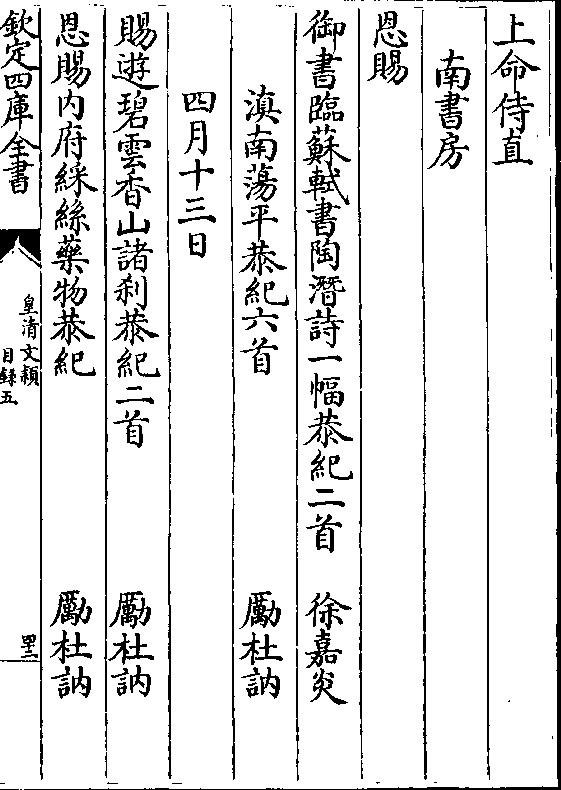 上命侍直
南書房
恩賜
御書臨蘇軾書陶潛詩一幅恭紀二首 徐嘉炎
滇南蕩平恭紀六首 勵杜訥
四月十三日
賜遊碧雲香山諸刹恭紀二首 勵杜訥
恩賜內府綵絲藥物恭紀 勵杜訥
欽定四庫全書
皇清文穎
目錄五
四十二